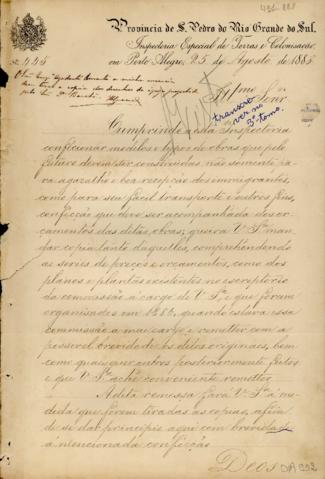 Provincia de S. Pedro do Rio Grande do Sul.
Inspectoria Especial de Terras e Colonisação,
em Porto Alegre, 25 de Agosto de 1885
Nº 445
Cumprindo a esta Inspectoria
confeccionar modelos e typos de obras que pelo
futuro devam ser construidas não somente pa-
ra agasalho e boa recepção dos immigrantes,
como para seu facil transporte e outros fins,
confecção que deve ser acompanhada dos or-
çamentos das ditas obras, queira V. Sª man-
dar copia tanto daquelles, comprehendendo
as series de preços e orçamentos, como dos
planos e plantas existentes no escriptorio
da commissão a cargo de V. Sª e que foram
organisados em quando estava essa
commissão a meu cargo e remetter com a
possivel brevidade os ditos originaes, bem
como quaesquer outros posteriormente feitos
e que V. Sª ache conveniente remetter.
A dita remessa fará V. Sª a me-
dida que forem tiradas as copias, afim
de se dar principio aqui com brevidade
á mencionada confecção.
Deos
DA992